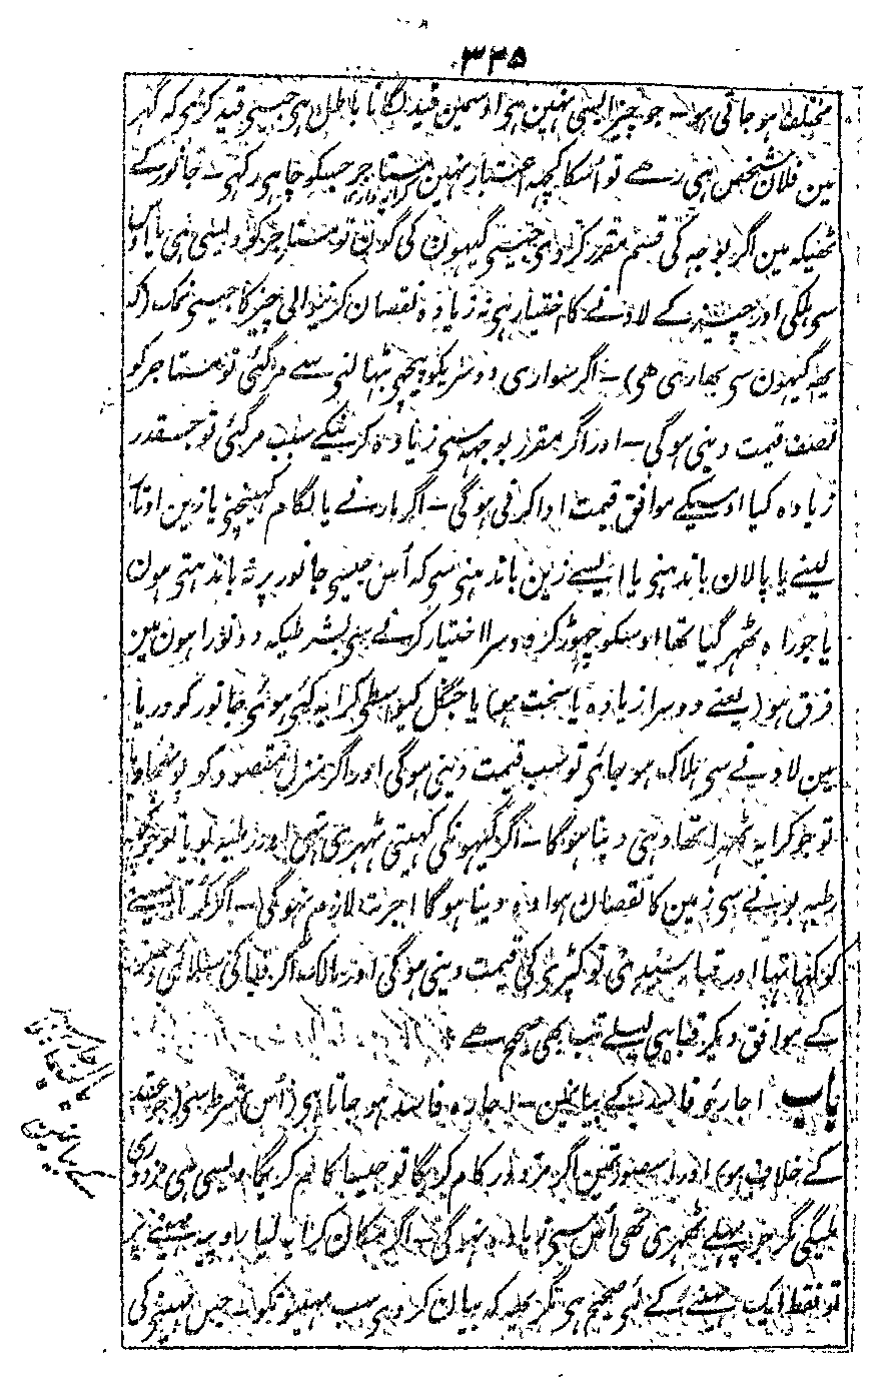 ۳۳۵
مختلف ہو جاتی ہو۔ جو چیز ایسی نہین ہی اوسمین قید لگانا باطل ہی جیسی قید کری کہ گہر
مین فلان شخص ہی رہے تو اسکا کچہہ اعتبار نہین مستاجر جسکو چاہی رکہی۔ جانور کے
کرایہ داری
ٹھیکہ مین اگر بوجہ کی قسم مقرر کر دی جیسی گیہون کی گون تو مستاجر کو ویسی ہی یا اوس
سی ہلکی اور چیز کے لادنے کا اختیار ہی نہ زیادہ نقصان کرنیوالی چیز کا جیسی نمک (کہ
یہہ گیہون سی بھاری ہی)۔ اگر سواری دوسریکو پیچہی بٹہا لنی سے مرگئی تو مستاجر کو
نصف قیمت دینی ہوگی۔ اور اگر مقرر بوجہہ سی زیادہ کرنیکے سبب مرگئی تو جسقدر
زیادہ کیا اوسیکے موافق قیمت ادا کرنی ہوگی۔ اگر مارنے یا لگام کہینچنی یا زین اوتار
لینے یا پالان باندہنی یا ایسے زین باندہنی سی کہ اُس جیسی جانور پر نہ باندہتی ہون
یا جو راہ ٹھہر گیا تھا اوسکو چہوڑ کر دوسرا اختیار کرنے سی بشرطیکہ دونو راہون مین
فرق ہو (یعنے دوسرا زیادہ یا سخت ہو) یا جنگل کیواسطی کرایہ کئی ہوئی جانور کو دریا
مین لادنے سی ہلاک ہو جائی تو سب قیمت دینی ہوگی اور اگر منزل مقصود کو پونہچا دیا
تو جو کرایہ ٹھہرا تھا وہی دینا ہوگا۔ اگر گیہونکی کہیتی ٹہہری تہی اور رطبہ بویا تو جو کچہہ
رطبہ بونے سی زمین کا نقصان ہوا وہ دینا ہوگا اجرت لازم نہوگی۔ اگر کُرتا سینے
کو کہا تہا اور قبا سیدی تو کپڑی کی قیمت دینی ہوگی اور مالک اگر قبا کی سلائی
کے موافق دیکر قبا ہی لیلے تب بھی صحیح ہے
باب اجارئہ فاسد کے بیانمین۔ اجارہ فاسد ہو جاتا ہی (اُس) شرط سی (جو عقد
کے خلاف ہو) اور اس صورتمین اگر مزدور کام کریگا تو جیسا کام کریگا ویسی ہی مزدوری
ملیگی مگر جو پہلے ٹھہری تھی اُس سی زیادہ نہوگی۔ اگر مکان کرایہ لیا روپیہ مہینے پر
تو فقط ایک مہینے کے لئی صحیح ہی مگر یہہ کہ بیان کر دی سب مہینونکو۔ جس مہینے کی
باب اجارہ
فاسد
کے بیانمین